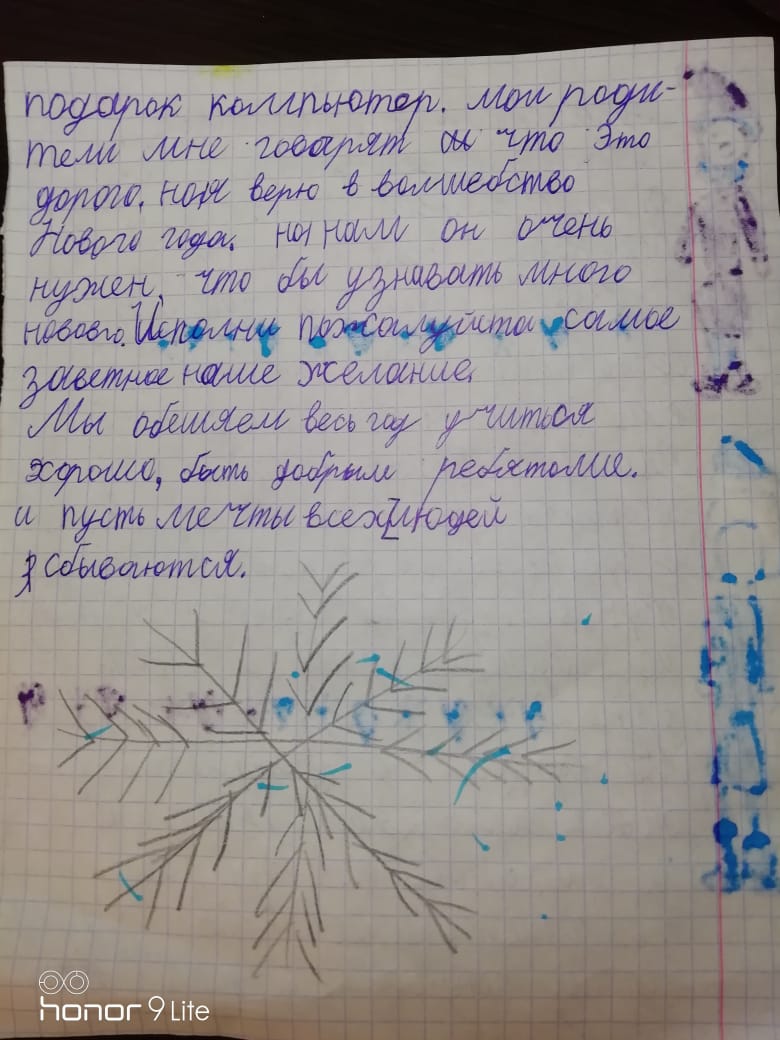 подарок компьютер. Мои роди-
тели мне говарят что это
дорого, но я верю в волшебство
Нового года. на нам он очень
нужен, что бы узнавать много
нового. Исполни пожалуйста самое
заветное наше желание.
Мы обещяем весь год учиться
хорошо, быть добрым ребятоми.
и пусть мечты всех людей
сбываются.
honor 9 Lite